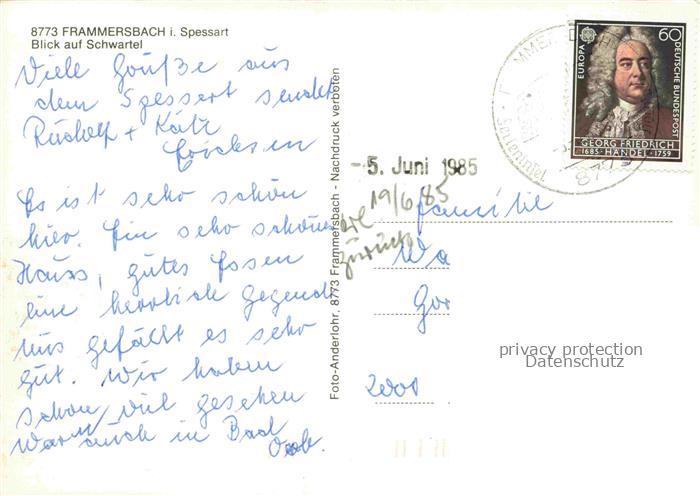 8773 FRAMMERSBACH i. Spessart
Blick auf Schwartel
Viele Grüße aus
dem Spessart sendet
Rudolf + Käti
Es ist sehr schön
hier. Ein sehr schönes
Haus, gutes Essen
eine herrliche Gegend
uns gefällt es sehr
gut. Wir haben
schon viel gesehen
waren auch in Bad
Orb.
Foto-Anderlohr, 8773 Frammersbach - Nachdruck verboten
- 5. Juni 1985
19/6/85
zurück
EUROPA
60
DEUTSCHE BUNDESPOST
GEORG FRIEDRICH
1685 · HÄNDEL · 1759
877
Familie
Wa
2000
privacy protection
Datenschutz